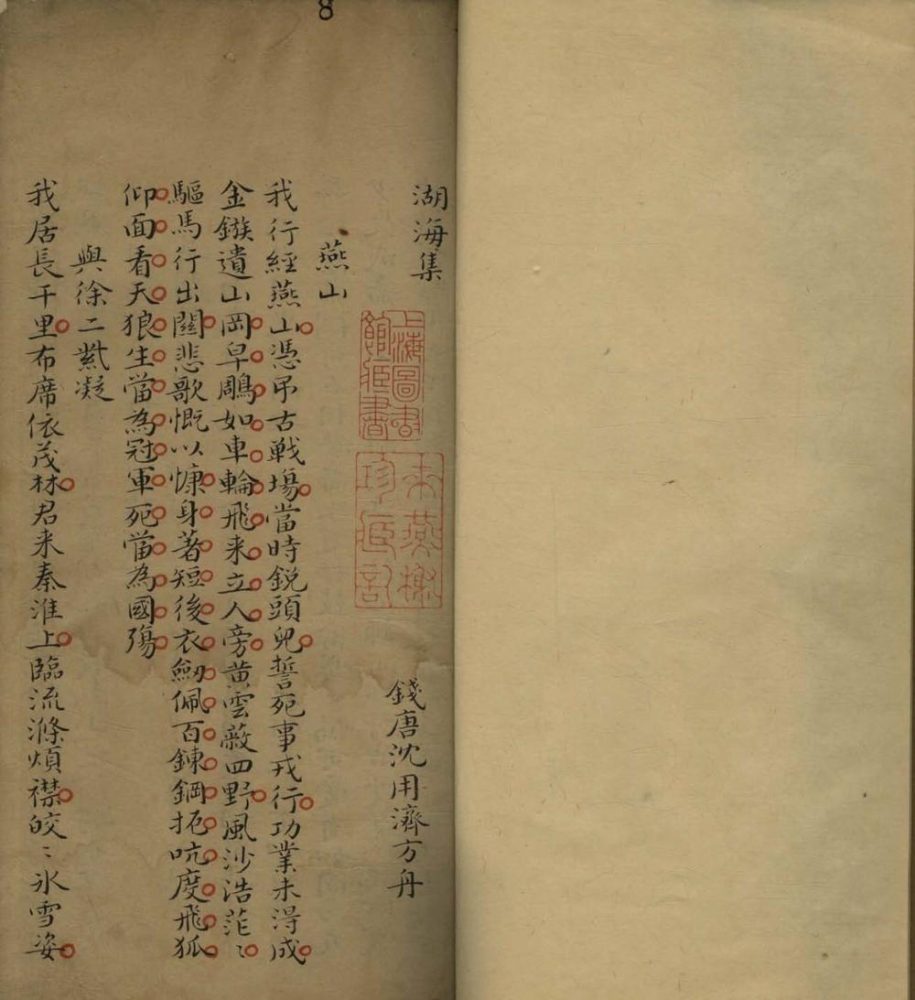 8
湖海集
錢唐沈用濟方舟
上海圖書館臧書
燕山
我行經燕山憑吊古戰場當時鋭頭兒誓死事戎行功業未得成
金鏃遺山岡皁鵰如車輪飛来立人旁黄雲蔽四野風沙浩茫〻
驅馬行出關悲歌慨以慷身著短後衣劒佩百鍊鋼扼吭度飛狐
仰面看天狼生當為冠軍死當為國殤
與徐二紫凝
我居長干里布席依茂林君来秦淮上臨流滌煩襟皎〻氷雪姿